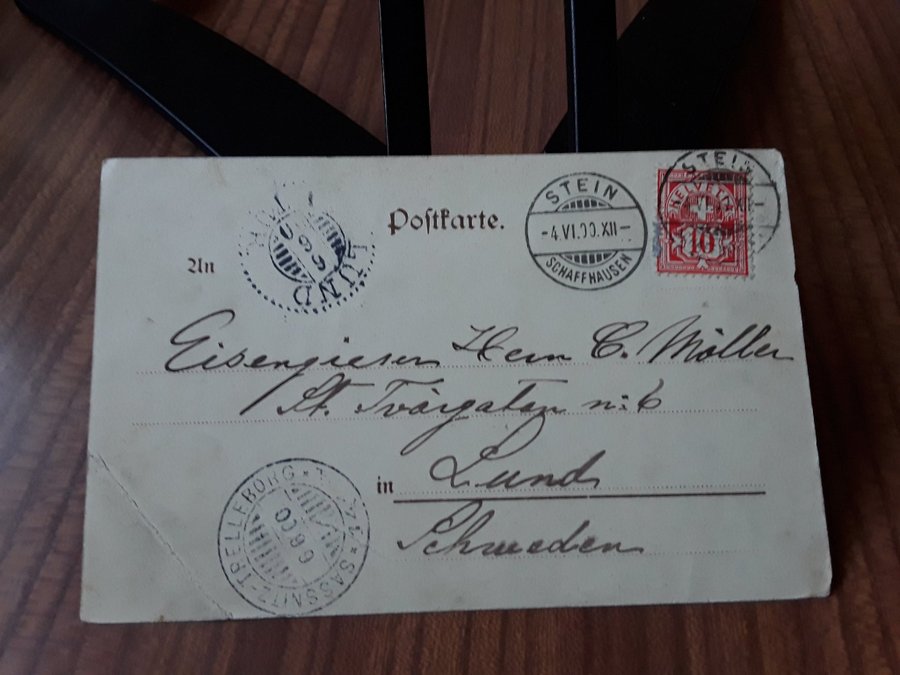 Postkarte.
An
LUND
STEIN
-4.VI.00.XII-
SCHAFFHAUSEN
STEIN
HELVETIA
10
Eisengiesser Herrn C. Möller
St. Tvärgatan n:6
in Lund
Schweden
SASSNITZ-TRELLEBORG
6 6 00